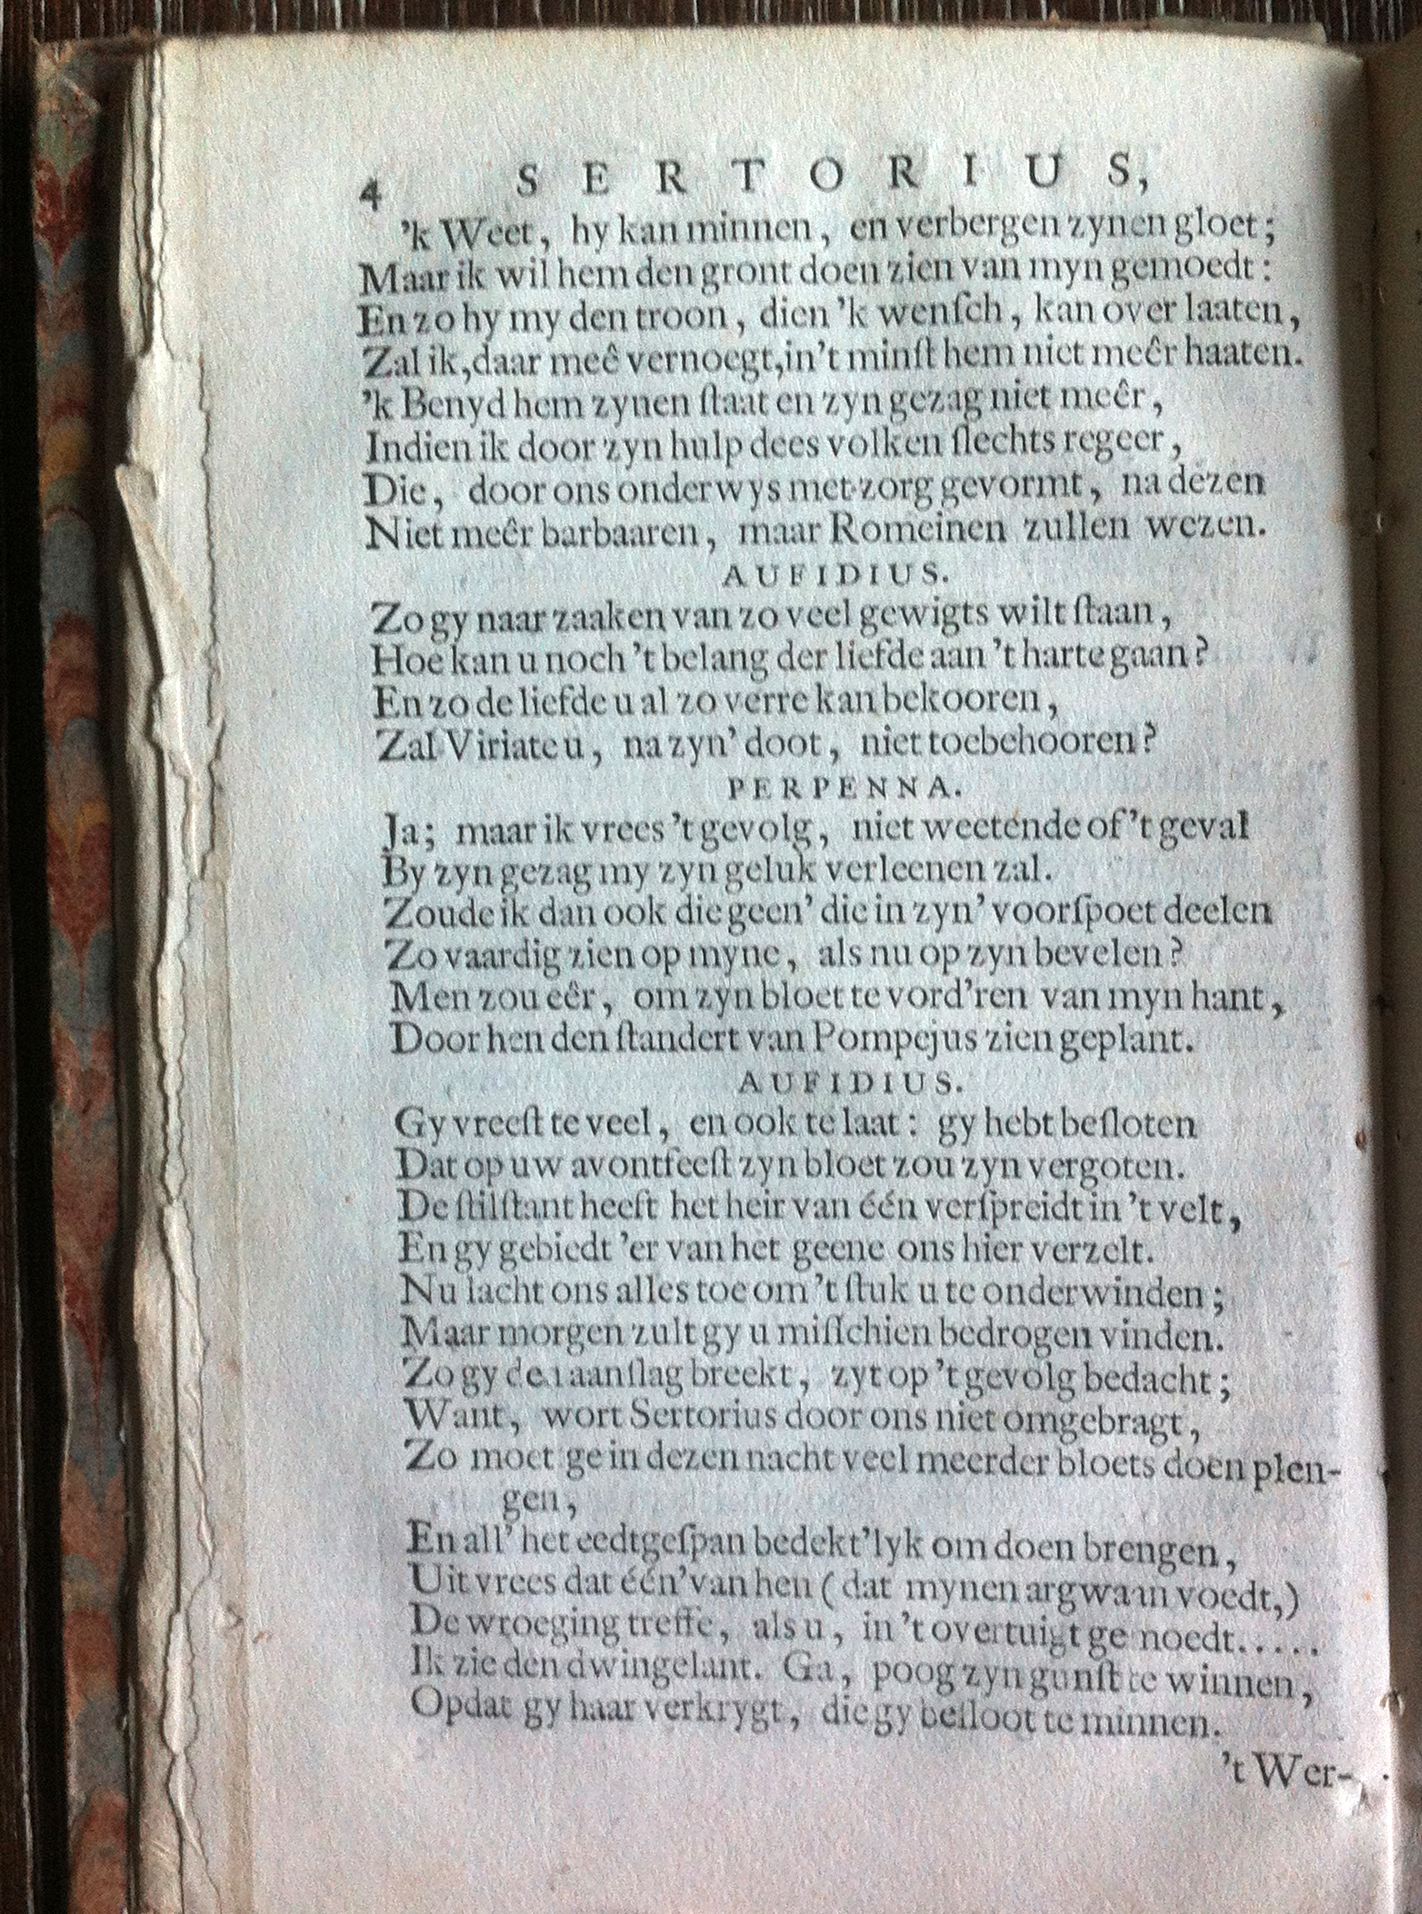 4 SERTORIUS,
'k Weet, hy kan minnen, en verbergen zynen gloet;
Maar ik wil hem den gront doen zien van myn gemoedt:
En zo hy my den troon, dien 'k wenſch, kan over laaten,
Zal ik, daar meê vernoegt, in 't minſt hem niet meêr haaten.
'k Benyd hem zynen ſtaat en zyn gezag niet meêr,
Indien ik door zyn hulp dees volken ſlechts regeer,
Die, door ons onderwys met zorg gevormt, na dezen
Niet meêr barbaaren, maar Romeinen zullen wezen.
AUFIDIUS.
Zo gy naar zaaken van zo veel gewigts wilt ſtaan,
Hoe kan u noch 't belang der liefde aan 't harte gaan?
En zo de liefde u al zo verre kan bekooren,
Zal Viriate u, na zyn' doot, niet toebehooren?
PERPENNA.
Ja; maar ik vrees 't gevolg, niet weetende of 't geval
By zyn gezag my zyn geluk verleenen zal.
Zoude ik dan ook die geen' die in zyn' voorſpoet deelen
Zo vaardig zien op myne, als nu op zyn bevelen?
Men zou eêr, om zyn bloet te vord'ren van myn hant,
Door hen den ſtandert van Pompejus zien geplant.
AUFIDIUS.
Gy vreeſt te veel, en ook te laat: gy hebt beſloten
Dat op uw avontfeeſt zyn bloet zou zyn vergoten.
De ſtilſtant heeft het heir van één verſpreidt in 't velt,
En gy gebiedt 'er van het geene ons hier verzelt.
Nu lacht ons alles toe om 't ſtuk u te onderwinden;
Maar morgen zult gy u miſſchien bedrogen vinden.
Zo gy den aanſlag breekt, zyt op 't gevolg bedacht;
Want, wort Sertorius door ons niet omgebragt,
Zo moet ge in dezen nacht veel meerder bloets doen plen-
gen,
En all' het eedtgeſpan bedekt'lyk om doen brengen,
Uit vrees dat één' van hen (dat mynen argwaan voedt,)
De wroeging treffe, als u, in 't overtuigt gemoedt.....
Ik zie den dwingelant. Ga, poog zyn gunſt te winnen,
Opdat gy haar verkrygt, die gy beſloot te minnen.
't Wer-